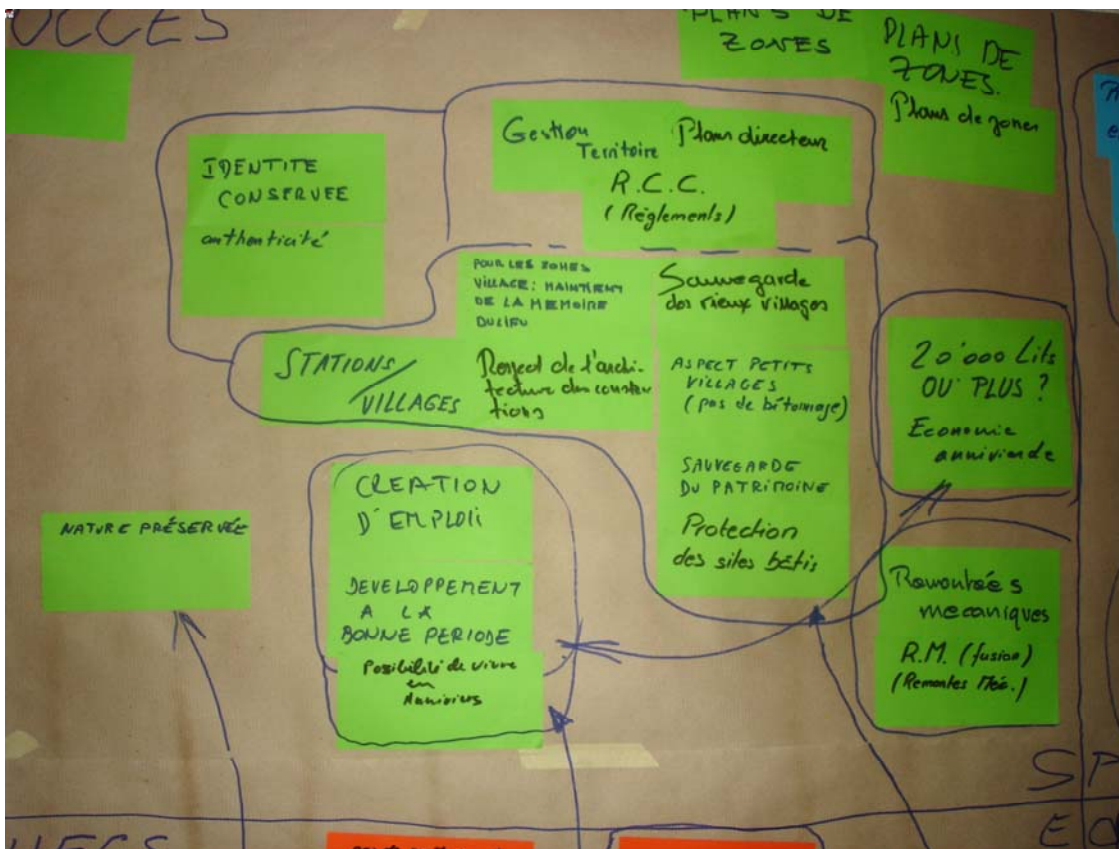 SUCCES
PLANS DE
ZONES
PLANS DE
ZONES.
Plans de zones
IDENTITE
CONSERVEE
authenticité
Gestion
Territoire
Plans directeur
R.C.C.
(Règlements)
POUR LES ZONES
VILLAGE: MAINTIENT
DE LA MEMOIRE
DU LIEU
Sauvegarde
des vieux villages
STATIONS/
VILLAGES
Respect de l'archi-
tecture des construc
tions
ASPECT PETITS
VILLAGES
(pas de bétonnage)
SAUVEGARDE
DU PATRIMOINE
Protection
des sites bâtis
20'000 Lits
OU PLUS?
Economie
anniviarde
CREATION
D'EMPLOI
DEVELOPPEMENT
A LA
BONNE PERIODE
Possibilité de vivre
en
Anniviers
NATURE PRÉSERVÉE
Remontées
mecaniques
R.M. (fusion)
(Remontes Méc.)
SP
EO